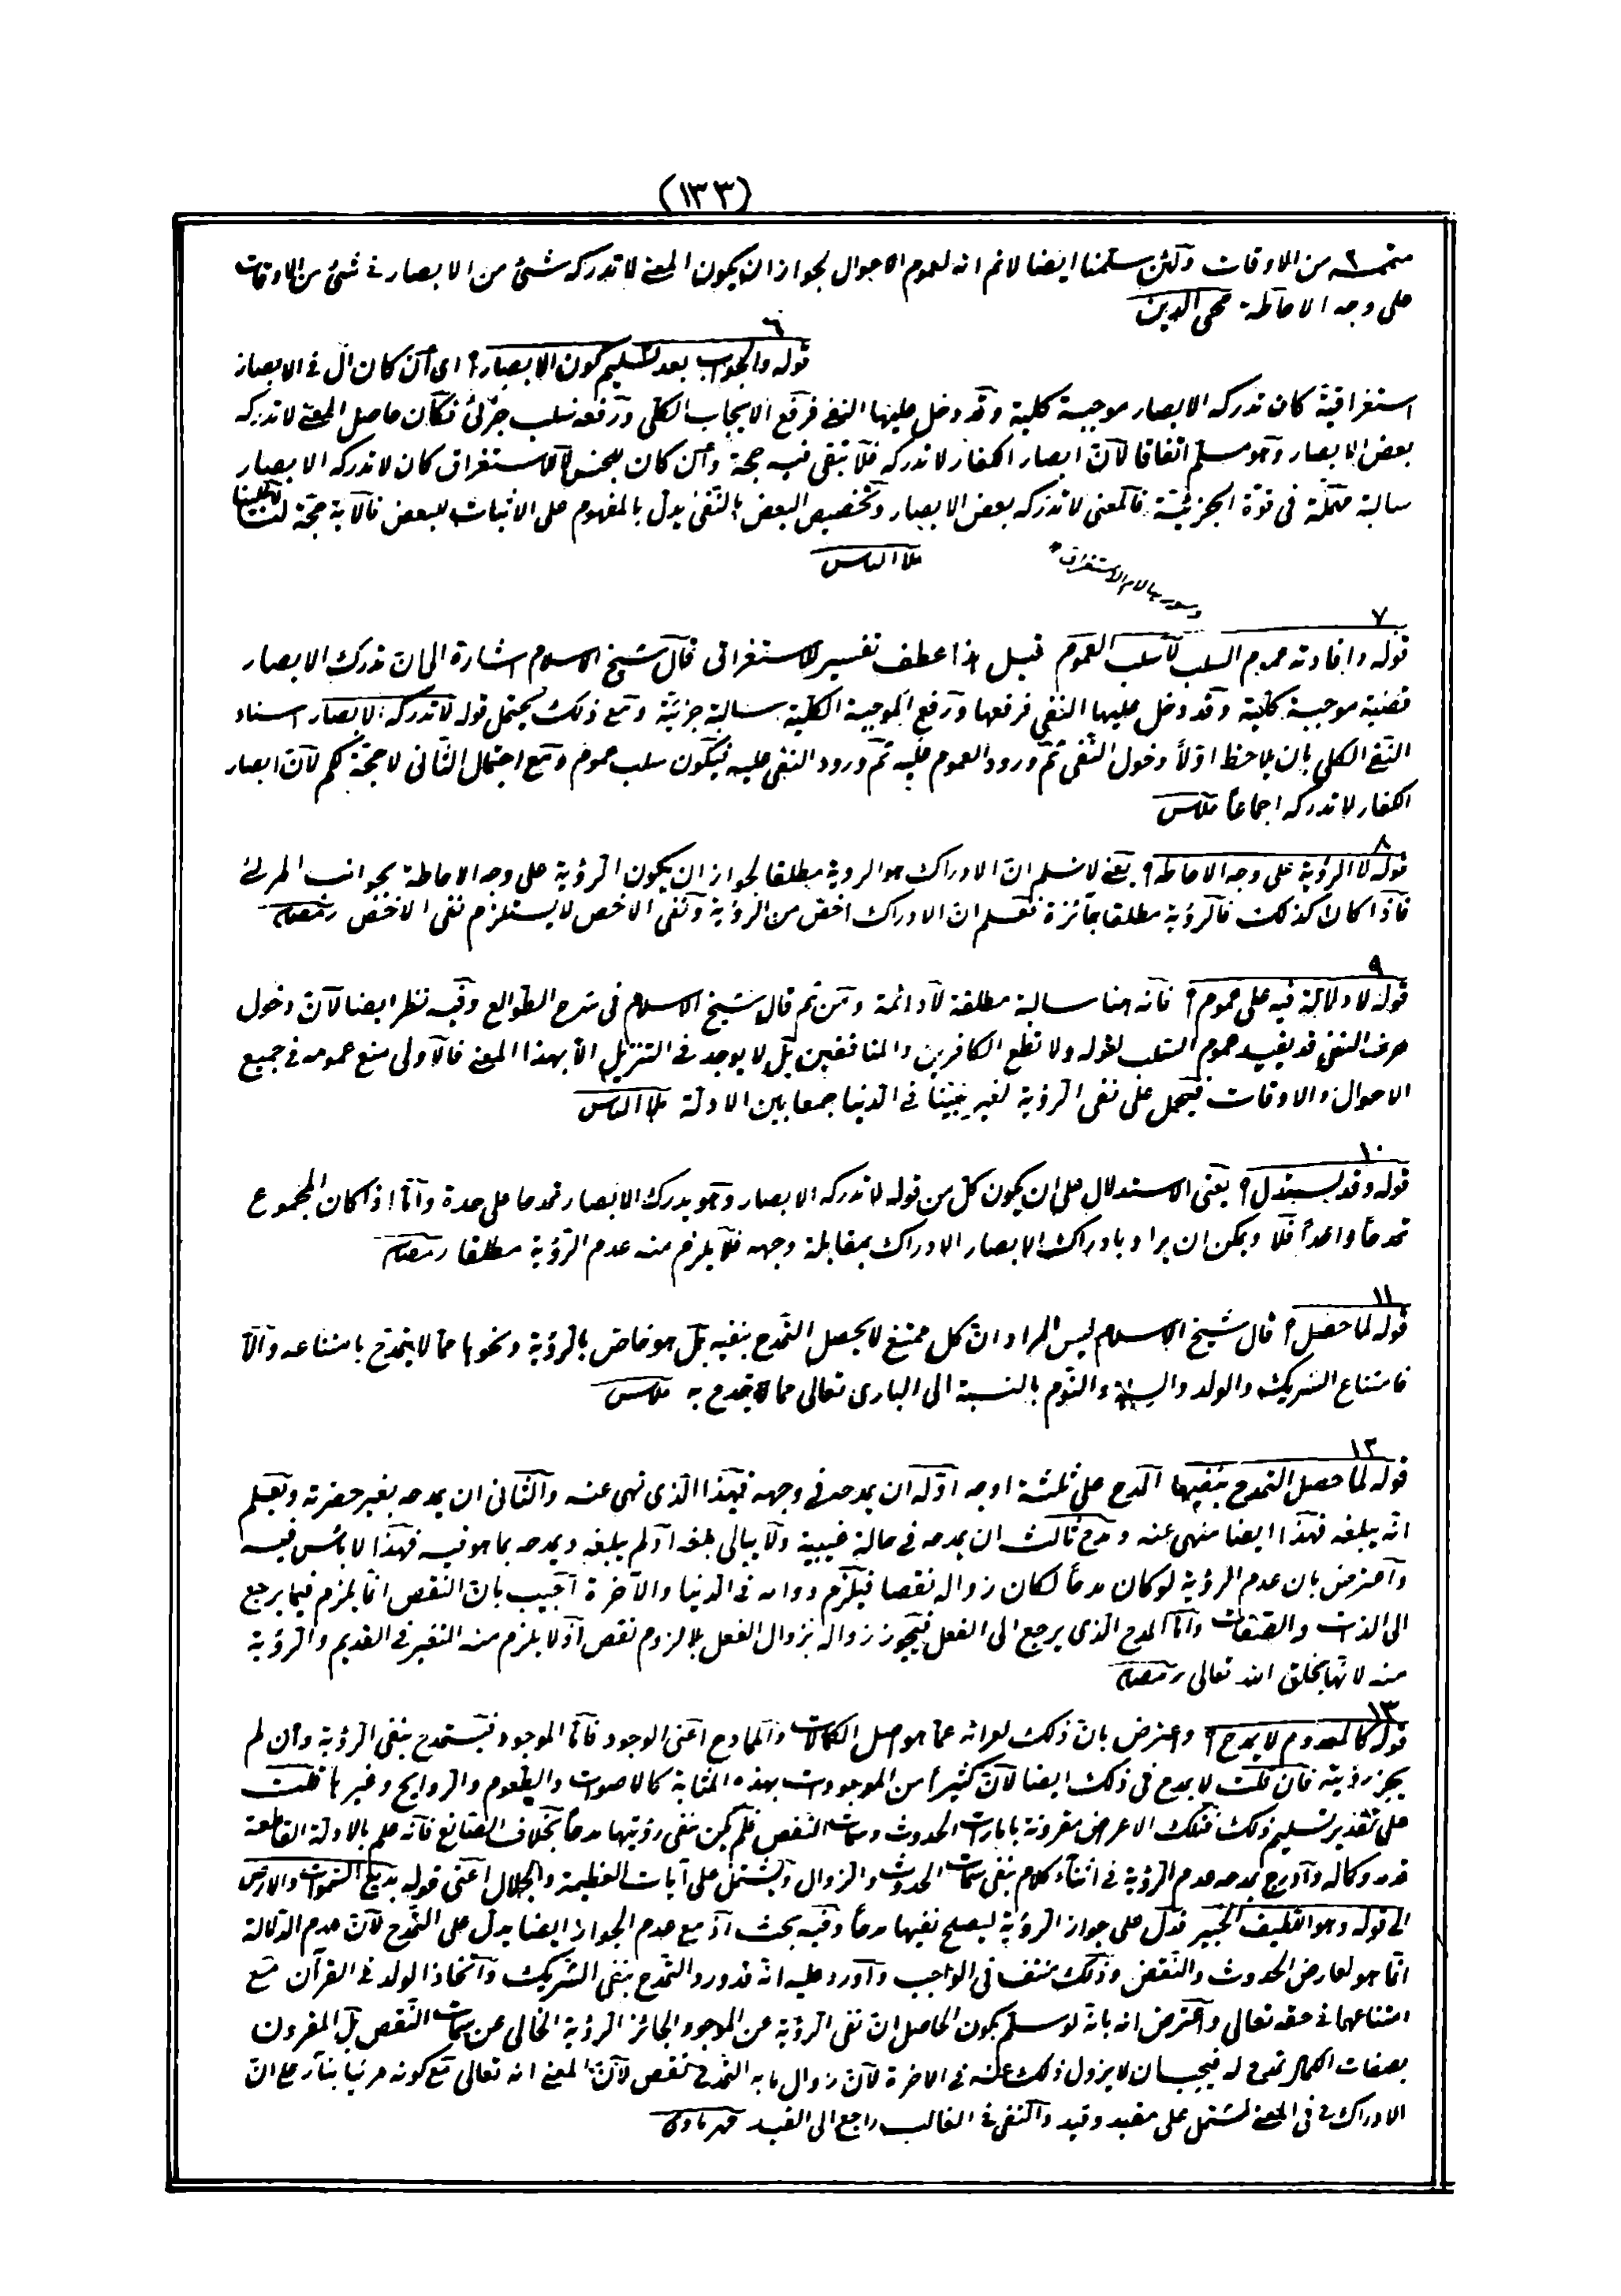 (١٣٣)
من الاوقات ولئن سلمنا ايضا لانم انه لعموم الاحوال لجواز ان يكون المعنى لا تدركه شئ من الابصار فى شئ من الاوقات
على وجه الاحاطة محى الدين
٦
قوله والجواب بعد تسليم كون الابصار ؟ اى ان كان ال فى الابصار
استغراقية كان تدركه الابصار موجبة كلية وقد دخل عليها النفى فرفع الايجاب الكلى ورفعه سلب جزئى فكان حاصل المعنى لا تدركه
بعض الابصار وهو مسلم اتفاقا لان ابصار الكفار لا تدركه فلا تبقى فيه حجة وان كان للجنس لا للاستغراق كان لا تدركه الابصار
سالبة مهملة فى قوة الجزئية فالمعنى لا تدركه بعض الابصار وتخصيص البعض بالنفى يدل بالمفهوم على الاثبات للبعض فالآية حجة لنا لا علينا
ملا الياس
بلام الاستغراق
٧
قوله وافادته عموم السلب لا سلب العموم قيل هذا عطف تفسير للاستغراق قال شيخ الاسلام اشارة الى ان تدرك الابصار
قضية موجبة كلية وقد دخل عليها النفى فرفعها ورفع الموجبة الكلية سالبة جزئية ومع ذلك يحتمل قوله لا تدركه الابصار اسناد
النفى الكلى بان يلاحظ اولا دخول النفى ثم ورود العموم عليه ثم ورود النفى عليه فيكون سلب عموم ومع احتمال الثانى لا حجة لكم لان ابصار
الكفار لا تدركه اجماعا
٨
قوله لا الرؤية على وجه الاحاطة ؟ يعنى لا نسلم ان الادراك هو الروية مطلقا لجواز ان يكون الرؤية على وجه الاحاطة بجوانب المرئى
فاذا كان كذلك فالرؤية مطلقا جائزة فعلم ان الادراك اخص من الرؤية ونفى الاخص لا يستلزم نفى الاخص رمضان
٩
قوله لا دلالة فيه على عموم ؟ فانه هنا سالبة مطلقة لا دائمة ومن ثم قال شيخ الاسلام فى شرح الطوالع وفيه نظر ايضا لان دخول
حرف النفى قد يفيد عموم السلب لقوله ولا تطع الكافرين والمنافقين بل لا يوجد فى التنزيل الا بهذا المعنى فالاولى منع عمومه فى جميع
الاحوال والاوقات فيحمل على نفى الرؤية لغير نبينا فى الدنيا جمعا بين الادلة ملا الياس
١٠
قوله وقد يستدل ؟ يعنى الاستدلال على ان يكون كل من قوله لا تدركه الابصار وهو يدرك الابصار تمدحا على حدة واما اذا كان المجموع
تمدحا واحدا فلا ويمكن ان يراد بادراك الابصار الادراك بمقابلة وجهه فلا يلزم منه عدم الرؤية مطلقا رمضان
١١
قوله لما حصل ؟ قال شيخ الاسلام ليس المراد ان كل ممتنع لا يحصل التمدح بنفيه بل هو خاص بالرؤية ونحوها مما لا يتمدح بامتناعه والا
فامتناع الشريك والولد والسنة والنوم بالنسبة الى البارى تعالى مما يتمدح به
١٢
قوله لما حصل التمدح بنفيها المدح على ثلثة اوجه اوله ان يمدحه فى وجهه فهذا الذى نهى عنه والثانى ان يمدحه بغير حضرته ويعلم
انه يبلغه فهذا ايضا منهى عنه ومدح ثالث ان يمدحه فى حالة غيبية ولا يبالى بلغه او لم يبلغه ويمدحه بما هو فيه فهذا لا بأس فيه
واعترض بان عدم الرؤية لو كان مدحا لكان زواله نقصا فيلزم دوامه فى الدنيا والآخرة اجيب بان النقص انما يلزم فيما يرجع
الى الذات والصفات واما المدح الذى يرجع الى الفعل فيجوز زواله بزوال الفعل بلا لزوم نقص اذ لا يلزم منه التغير فى القديم والرؤية
منه لانها بخلق الله تعالى رمضان
١٣
قوله كالمعدوم لا يمدح ؟ واعترض بان ذلك لعرائه عما هو اصل الكمالات والممادح اعنى الوجود فاما الموجود فيستمدح بنفى الرؤية وان لم
يجز رؤيته فان قلت لا يمدح فى ذلك ايضا لان كثيرا من الموجودات بهذه المثابة كالاصوات والطعوم والروايح وغيرها قلت
على تقدير تسليم ذلك فتلك الاعراض مقرونة بامارات الحدوث وسمات النقص فلم يكن نفى رؤيتها مدحا بخلاف الصانع فانه علم بالادلة القاطعة
قدمه وكماله وادرج تمدحه عدم الرؤية فى اثناء كلام بنفى سمات الحدوث والزوال ويشتمل على آيات العظيمة والجلال اعنى قوله بديع السموات والارض
الى قوله وهو اللطيف الخبير فدل على جواز الرؤية ليصلح نفيها مدحا وفيه بحث اذ مع عدم الجواز ايضا يدل على التمدح لان عدم الدلالة
انما هو لعارض الحدوث والنقص وذلك منتف فى الواجب واورد عليه انه قد ورد التمدح بنفى الشريك واتخاذ الولد فى القرآن مع
امتناعهما فى حقه تعالى واعترض انه بانه لو سلم يكون الحاصل ان نفى الرؤية عن الموجود الجائز الرؤية الخالى عن سمات النقص بل المقرون
بصفات الكمال تمدح له فيجب ان لا يزول ذلك عنه فى الاخرة لان زوال ما به التمدح نقص لان المعنى انه تعالى مع كونه مرئيا بناء على ان
الادراك فى المعنى مشتمل على مقيد وقيد والنفى فى الغالب راجع الى القيد